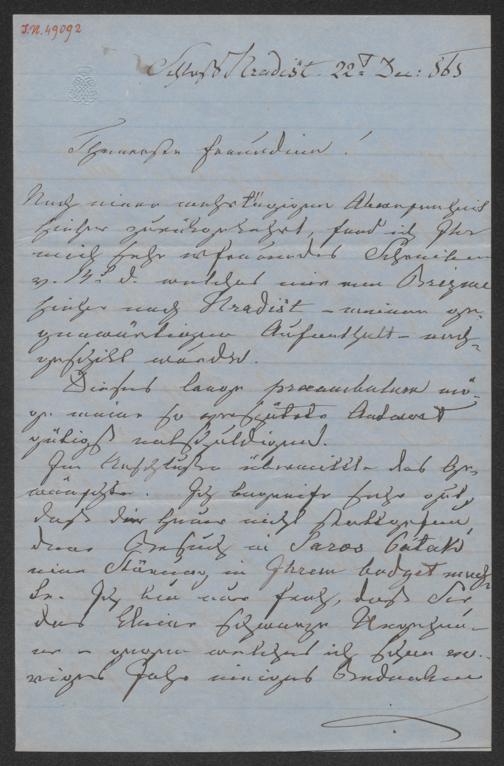 J.N. 49092
Schloß Hradist. 22t Dec: 865
Theuerste Freundinn!
Nach einer mehrtägigen Abwesenheit
hieher zurückgekehrt, fand ich Ihr
mich sehr erfreuendes Schreiben
v. 14. d. welches mir von Brezina
hieher nach Hradist – meinen ge-
genwärtigen Aufenthalt – nach-
geschickt wurde.
Dieses lange praeambulum mö-
ge meine so verspätete Antwort
gütigst entschuldigen.
Im Anschlusse übermittle das Ge-
wünschte. Ich begreife sehr gut,
daß der heuer nicht stattgefundene
Besuch in Saros Patak
eine Störung in Ihrem budget mach-
te. Ich bin nur froh, daß Sie
das kleine schwarze
– gegen welches ich schon vo-
riges Jahr einiges Bedenken